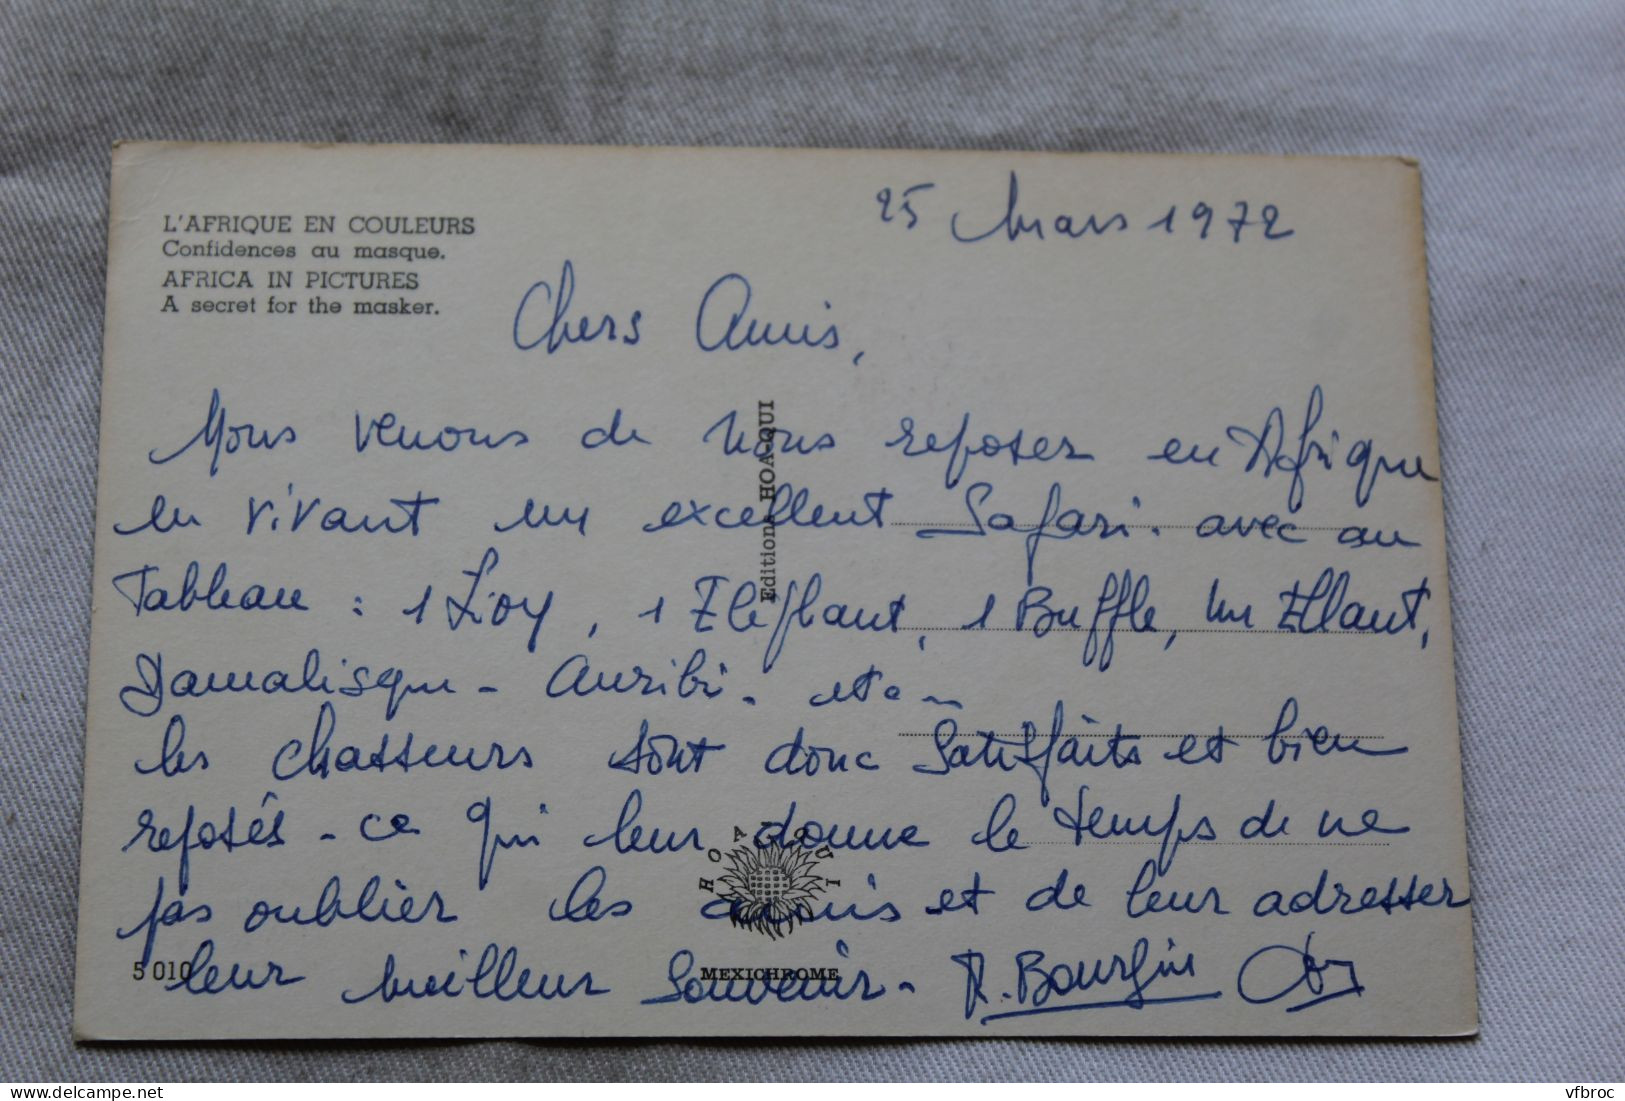 L'AFRIQUE EN COULEURS
Confidences au masque.
AFRICA IN PICTURES
A secret for the masker.
25 Mars 1972
Chers Amis,
Nous venons de nous reposer en Afrique
en vivant un excellent Safari. avec au
Tableau : 1 Lion, 1 Eléphant, 1 Buffle, un Elland,
Damalisque - Ouribi. etc
les chasseurs sont donc satisfaits et bien
reposés - ce qui leur donne le temps de ne
pas oublier les amis et de leur adresser
leur meilleur Souvenir - R.
Editions HOA-QUI
HOA-QUI
5 010
MEXICHROME
vfbroc